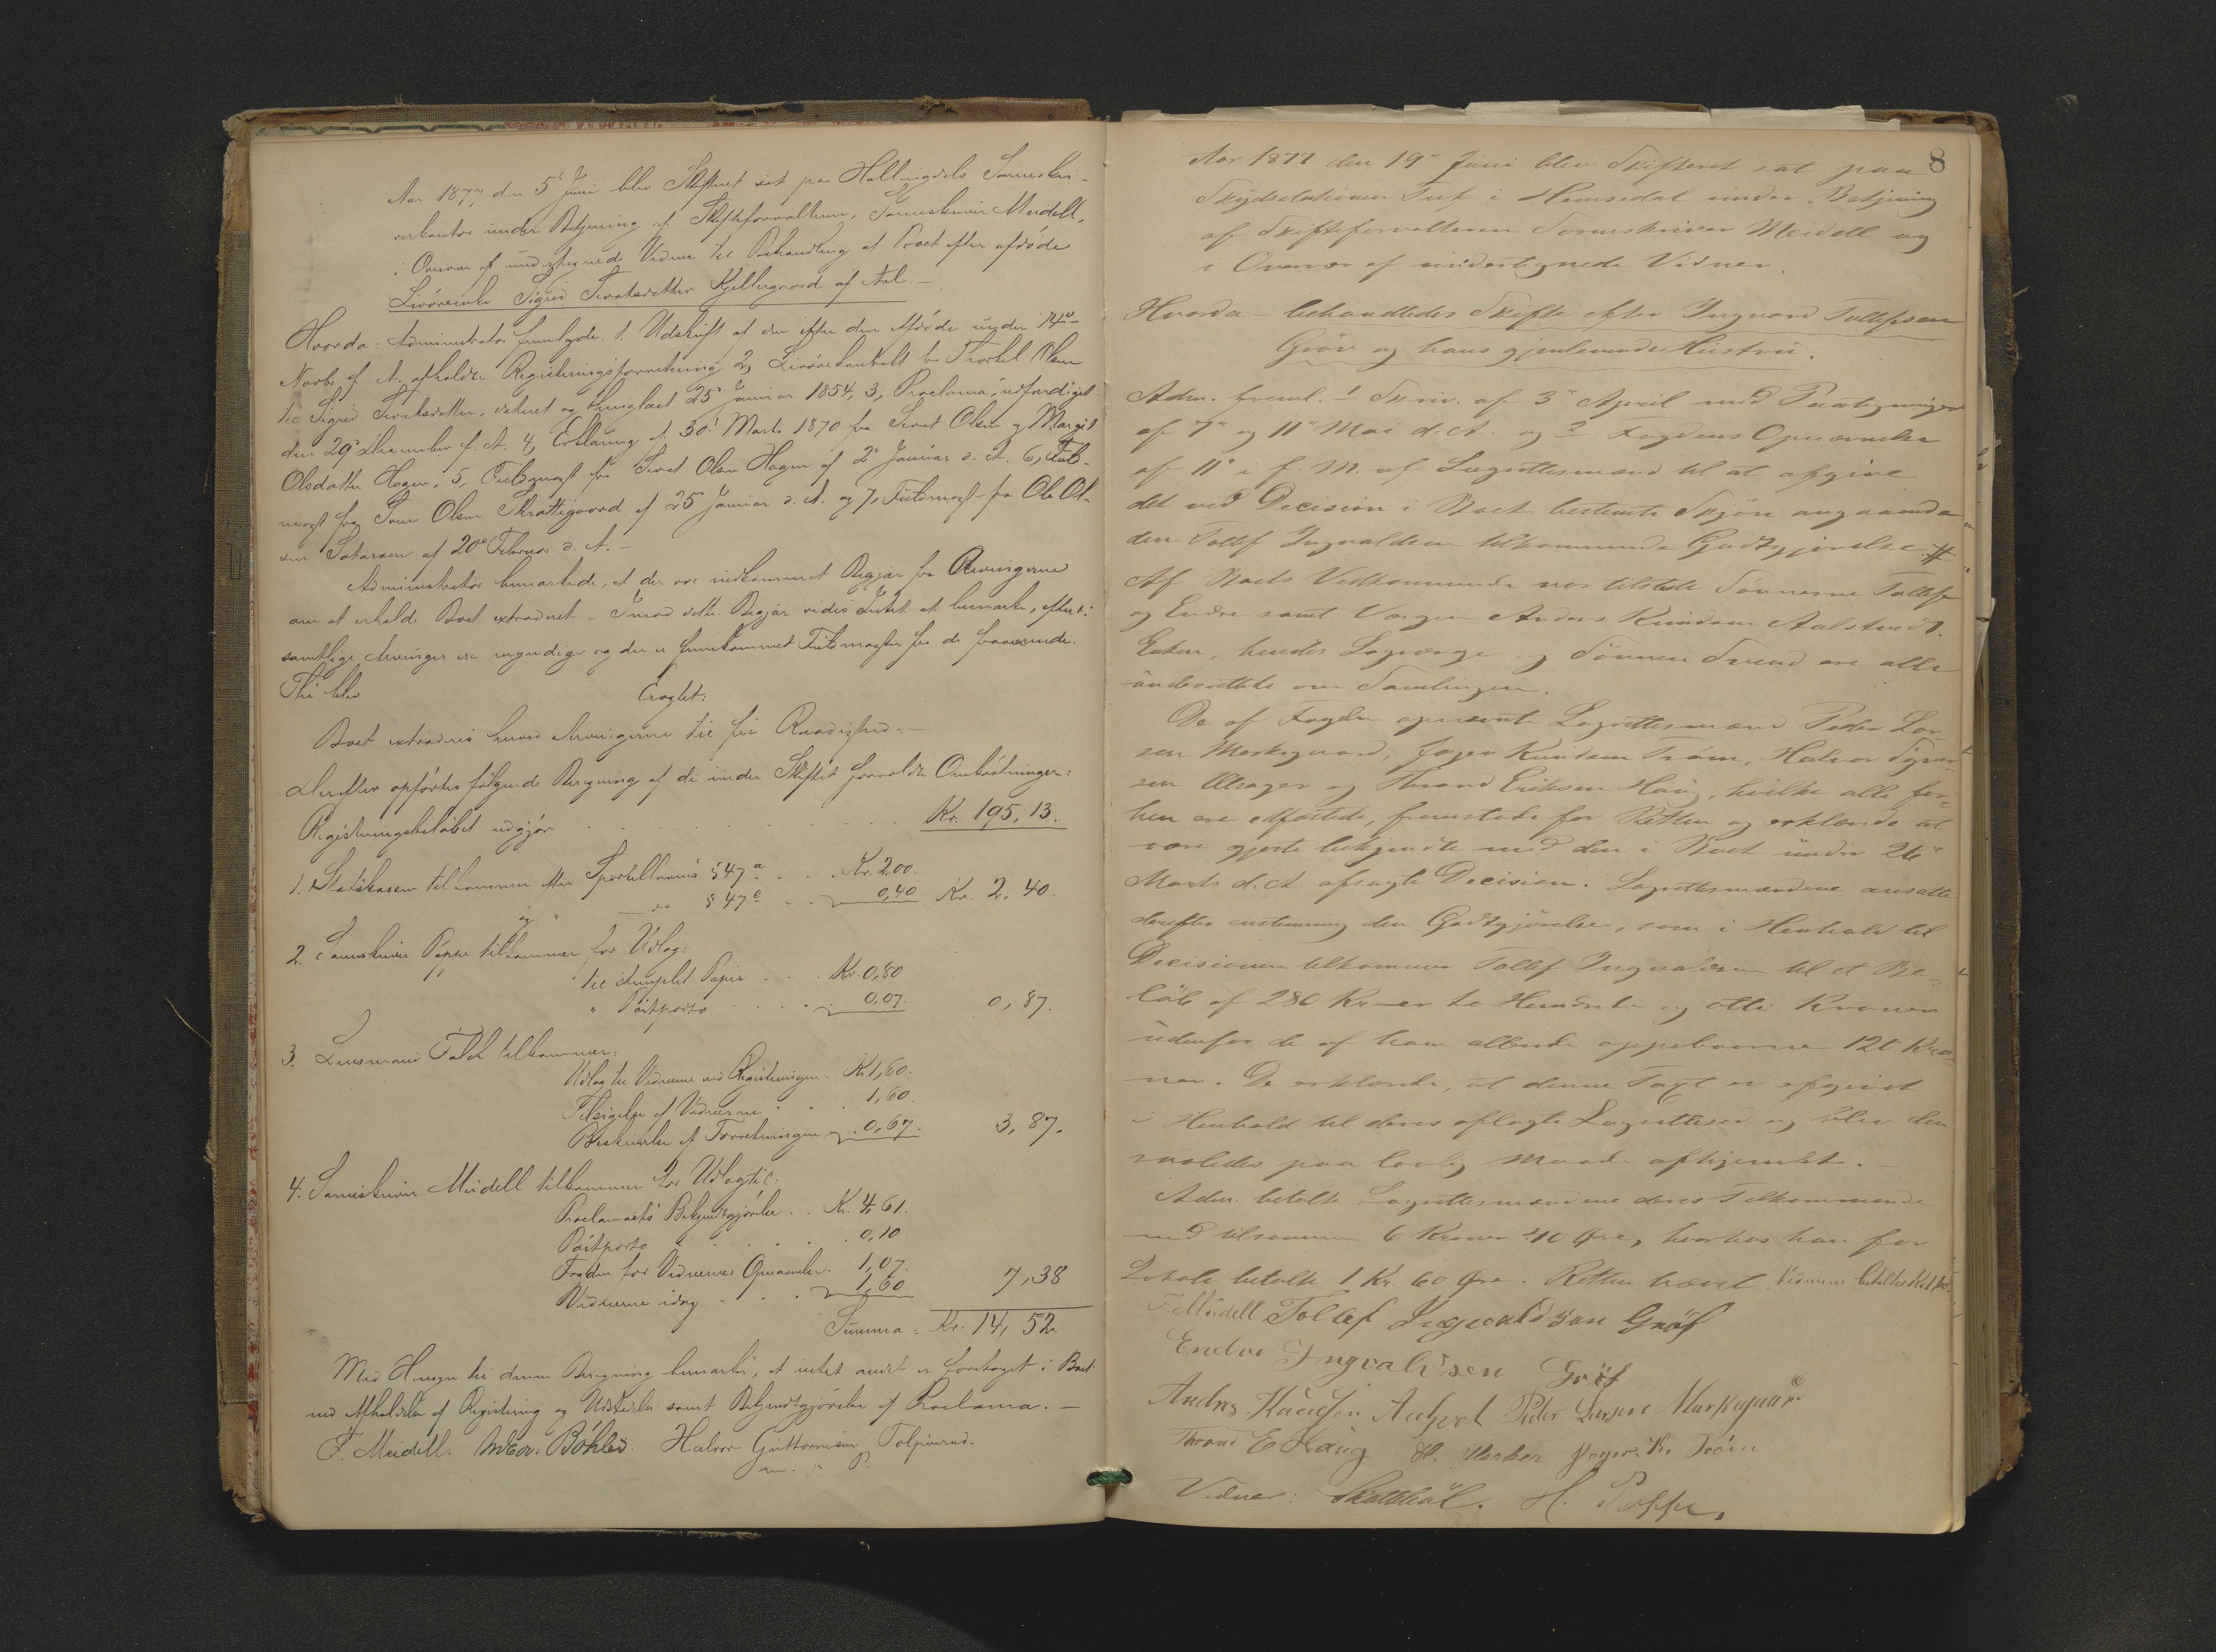 Aar 1877 den 5te Juni blev Skiftet sat paa Hallingdals Sorenskri-
verkontor under Betjening af Skifteforvalteren, Sorenskriver Meidell,
i Overvær af undertegnede Vidner til Behandling af Boet efter afdøde
Livøreenke Sigrid Sivertsdatter Kjellergaard af Aal.—
Hvorda: Administrator fremlagde: 1. Udskrift af den efter den Afdøde under 14de
Novbr. f. A. afholdte Registreringsforretning 2, Livørekontrakt fra Thorkel Olsen
til Sigrid Sivertsdatter, dateret og thinglæst 25de Januar 1854, 3, Proclama, udfærdiget
den 29de December f. A. 4, Erklæring af 30te Marts 1870 fra Sivert Olsen og Margit
Olsdatter Hagen, 5, Fuldmagt fra Sivert Olsen Hagen af 2de Januar d. A. 6, Fuld-
magt fra Tom Olsen Skrattegaard af 25de Januar d. A. og 7, Fuldmagt fra Ole Ol-
sen Sataroen af 20de Februar d. A.—
Administrator bemærkede, at der var indkommet Begjær fra Arvingerne
om at erholde Boet extraderet.— Imod dette Begjær vides Intet at bemærke, efterdi
samtlige Arvinger ere myndige og der er fremkommet Fuldmagter fra de fraværende.
Thi blev Eragtet:
Boet extraderes herved Arvingerne til fri Raadighed.—
Derefter opførtes følgende Beregning af de under Skiftet forvoldte Omkostninger:
Registreringsbeløbet udgjør . . . Kr. 195,13.
1. Statskassen tilkommer efter Sportellovens § 47a . . . Kr. 2,00.
og " — do § 47e . . 0,40 Kr. 2,40.
2. Sorenskriver Poppe tilkommer for Udlæg:
til stemplet Papir . . . Kr. 0,80
" Postporto . . . . . 0,07. 0,87.
3. Lensmand Falch tilkommer:
Udlæg til Vidnerne ved Registreringen Kr. 1,60.
Tilsigelse af Vidnerne . . . 1,60.
Beskrivelse af Forretningen . 0,67. 3,87.
4. Sorenskriver Meidell tilkommer for Udlæg til:
Proclamaets Bekjendtgjørelse . . Kr. 4,61.
Postporto . . . . . 0,10
Fogden for Vidnernes Opnævnelse. 1,07.
Vidnerne idag . . . . 1,60 7,38
Summa = Kr. 14,52
Med Hensyn til denne Beregning bemærkes, at intet andet er foretaget i Boet
end Afholdelse af Registrering og Udstedelse samt Bekjendtgjørelse af Proclama.—
F. Meidell. Böhler. Halvor Guttormsen Tolpinrud.
m. " P.
8
Aar 1877 den 19de Juni blev Skifteret sat paa
Skydsstationen Tuf i Hemsedal under Betjening
af Skifteforvalteren Sorenskriver Meidell og
i Overvær af undertegnede Vidner.
Hvorda behandledes Skifte efter Ingvord Tollefsen
Gröv og hans gjenlevende Hustru.
Adm. freml. 1 Skriv. af 3de April med Paategninger
af 7de og 11te Mai d. A. og 2 Fogdens Opnævnelse
af 11te i f. M. af Lagrettesmænd til at afgive
det ved Decision i Boet bestemte Skjøn angaaende
den Tollef Ingvaldsen tilkommende Godtgjørelse. #
Af Boets Vedkommende var tilstede Sønnerne Tollef
og Endre samt Vergen Anders Knudsen Aalstveit.
Enken, hendes Lagverge og Sønnen Svend ere alle
underrettede om Samlingen.
De af Fogden opnævnte Lagrettesmænd Peder Lar-
sen Markegaard, Jøger Knudsen Trøim, Halvor Sjgur-
sen Ulsager og Thrond Eriksen Haug, hvilke alle for-
hen ere edfæstede, fremstode for Retten og erklærede at
være gjorte bekjendte med den i Boet under 26de
Marts d. A. afsagte Decision. Lagrettesmændene ansatte
derefter enstemmig den Godtgjørelse, som i Henhold til
Decisionen tilkommer Tollef Ingvaldsen til et Be-
løb af 280 Kr — er to Hundrede og otti Kroner
udenfor de af ham allerede oppebaarne 120 Kro-
ner. De erklærede, at denne Taxt er afgivet
i Henhold til deres aflagte Lagrettesed og blev den
saaledes paa lovlig Maade afhjemlet.
Adm. betalte Lagrettesmændene deres Tilkommende
med tilsammen 6 Kroner 40 Øre, hvorhos han for
Lokale betalte 1 Kr. 60 Øre. Retten hævet. Vidnerne betaltes
F. Meidell Tollef Ingvaldsen Gröf
Endre Ingvaldsen Gröf
Andrs Knudson Peder Larsen Markegaard
Thrond E Haug H. Ulsaker Jøger K. Tröim
Vidner: H. Poppe.